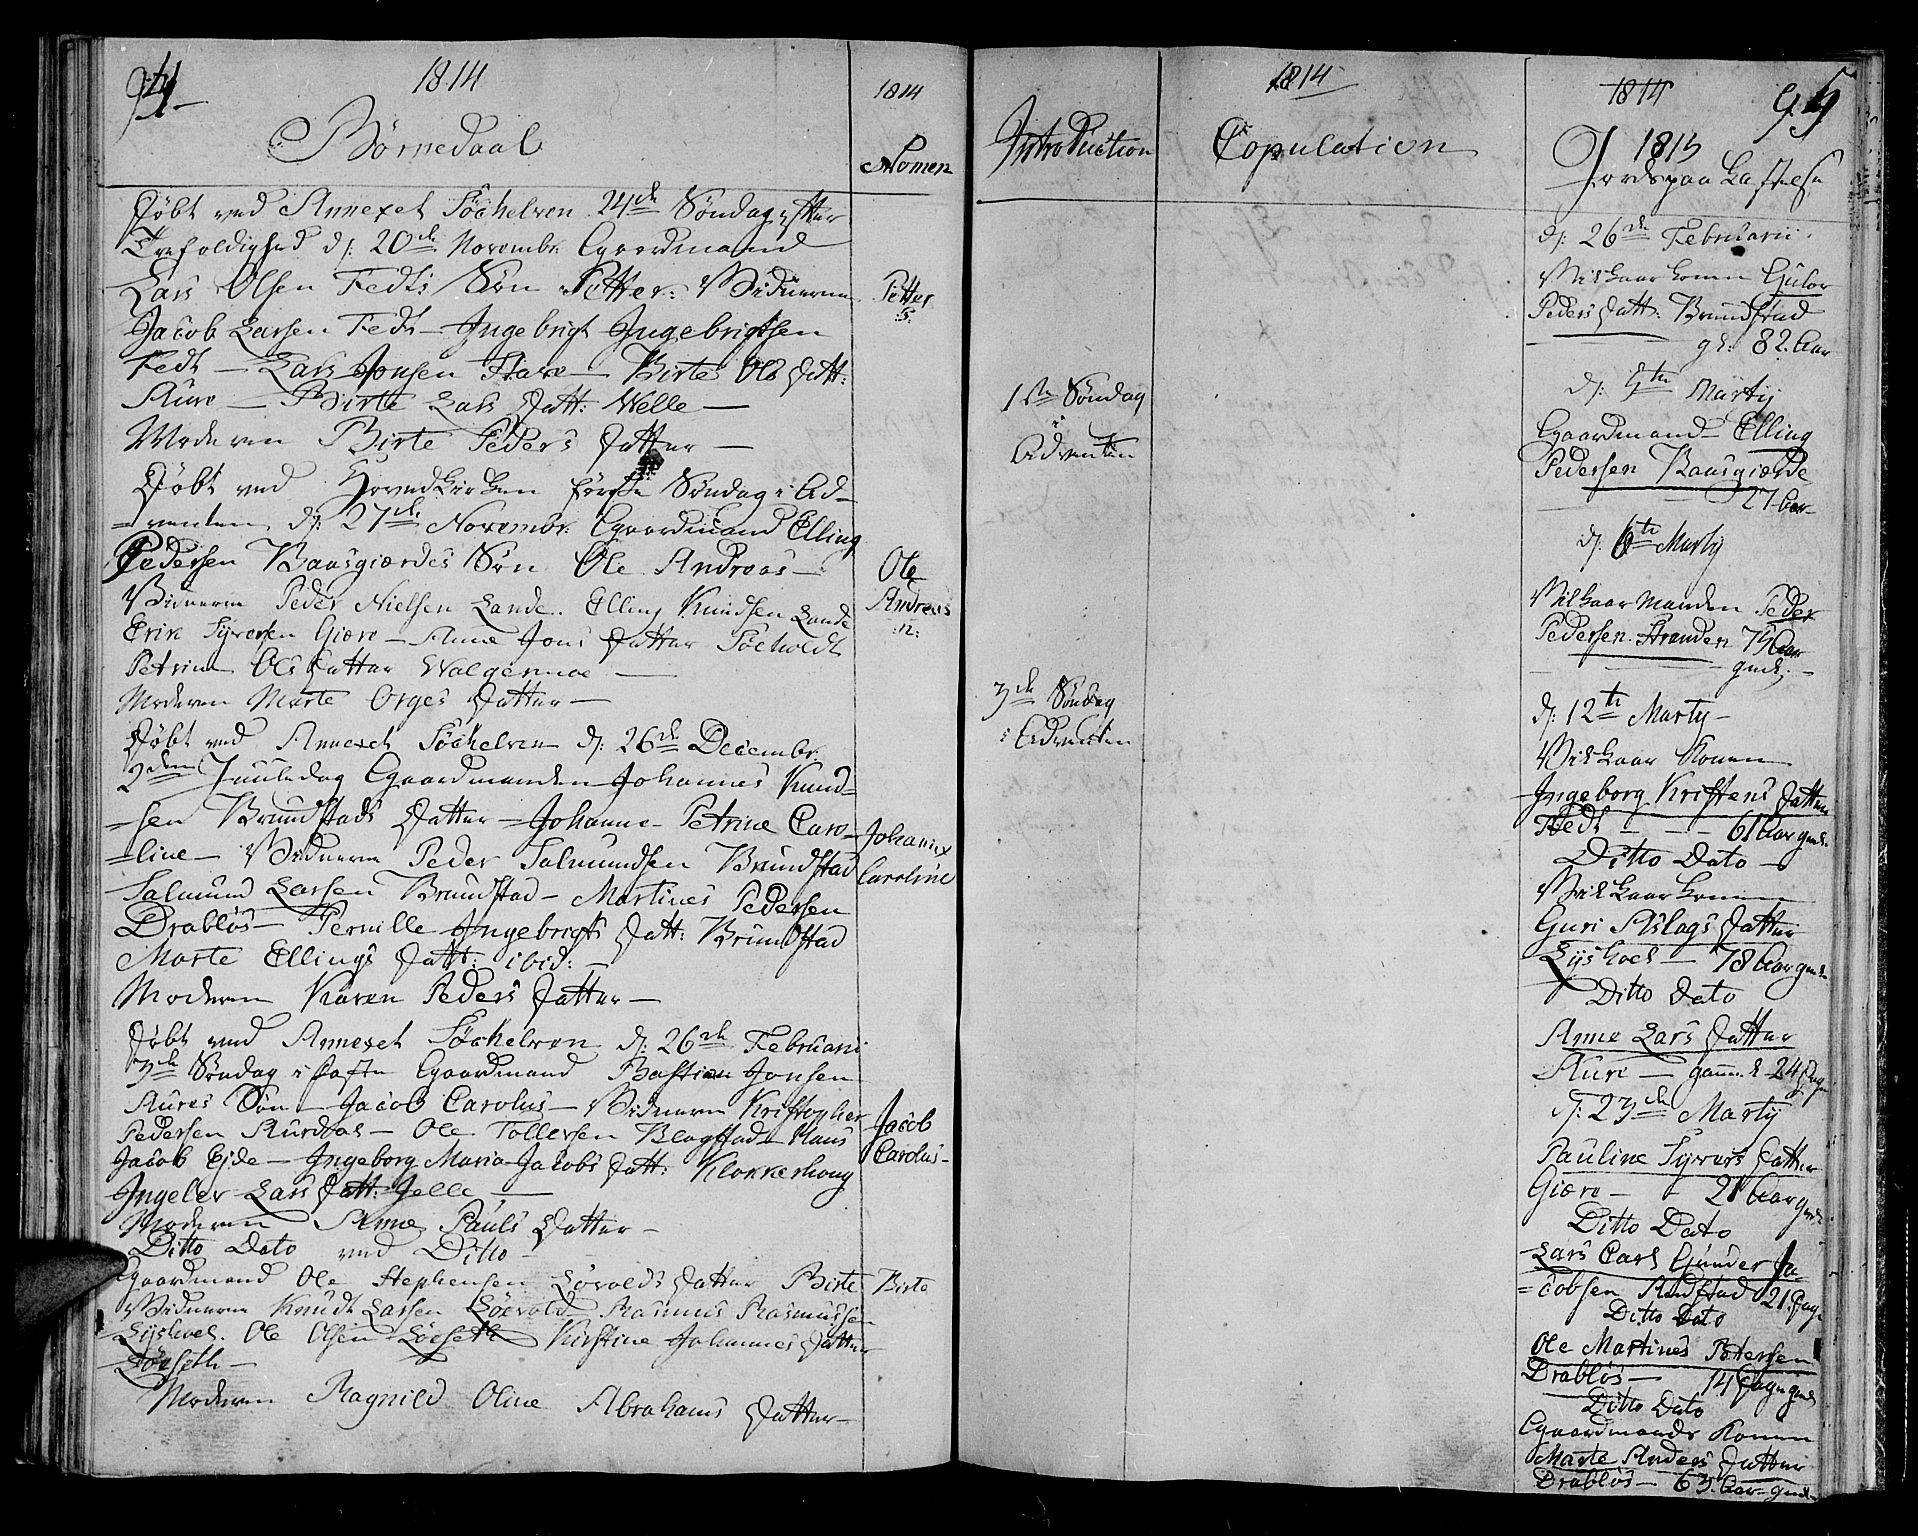 94
1814
1814
Børnedaab
Nomen
Døbt ved Annexet Söchelven 24de Søndag efter
Trefoldighed d: 20de Novembr. Gaardmand
Lars Olsen Fedts Søn Petter: Vidnerne
Jacob Larsen Fedt – Ingebrigt Ingebrigtsen
Fedt – Lars Jonsen Stave – Birte Ols Datt:
Aure – Birte Lars Datt: Welle –
Moderen Birte Peders Datter –
Petter
S:
Døbt ved Hovedkirken første Søndag i Ad-
=venten d: 27de Novembr. Gaardmand Elling
Pedersen Baasgierdes Søn Ole Andreas –
Vidnerne Peder Nielsen Lande. Elling Knudsen Lande
Erik Syversen Giære – Anne Jons Datter Söeholdt
Petrine Ols Datter Walgermoe –
Moderen Marte Orges Datter –
Ole
Andreas
:n:
Døbt ved Annexet Söchelven d: 26de Decembr.
2den Juuledag Gaardmanden Johannes Knud=
=sen Brundstads Datter – Johanne Petrine Caro-
=line – Vidnerne Peder Salmundsen Brundstad
Salmund Larsen Brundstad – Martines Pedersen
Drabløs – Pernille Ingebrigts Datt: Brundstad
Marte Ellings Datt: ibid: –
Moderen Karen Peders Datter –
Johanne
Caroline
Døbt ved Annexet Söchelven d: 26de Februarii
3de Søndag i Faste Gaardmand Bastian Jonsen
Aures Søn – Jacob Carolus – Vidnerne Kristopher
Pedersen Aurdal – Ole Tollersen Blagstad – Klaus
Jacob Ejde – Ingeborg Maria Jacobs Datt: Klokkerhoug
Ingeler Lars Datt: Jelle –
Moderen Anne Pauls Datter –
Jacob
Carolus –
Ditto Dato ved Ditto –
Gaardmand Ole Stephensen Lövolds Datter Birte
Vidnerne Knudt Larsen Löevold Rasmus Rasmussen
Lyshoel. Ole Olsen Löeseth Kirstine Johannes Datter
Löeseth –
Moderen Ragnild Oline Abrahams Datter –
Birte
1814
1814
95
Introduction
Copulation
1815
Jordspaa Kastelse
1ste Søndag
i
Adventen
3de Søndag
i Adventen
d: 26de Februarii
Vilkaar konen Gulor
Peders Datt: Brundstad
gl: 82. Aar
d: 5te Martij
Gaardmand – Elling
Pedersen Baasgierde
27 Aar
d: 6te Martij
Vilkaar manden Peder
Pedersen Stranden 75 Aar
gml: –
d: 12te Martij –
Vilkaar Konen
Ingeborg Kristens Datter
Fedt – – – 61 Aar gml.
Ditto Dato –
Vilkaar konen
Guri Aslags Datter
Lyshoel – 78 Aar gml
Ditto Dato
Anne Lars Datter
Aure – gaml 24 Dage
d: 23de Martij
Pauline Syvers Datter
Giære – 21 Aar gml
Ditto Dato
Lars Carl Gunder Ja-
=cobsen Rudstad 21 Dage
Ditto Dato
Ole Martines Petersen
Drabløs – 14 Dage gml
Ditto Dato
Gaardmands Konen
Marte Anders Datter
Drabløs – 63. Aar gml